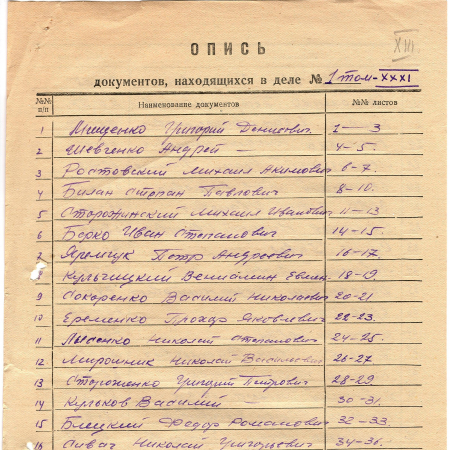 XIII
ОПИСЬ
документов, находящихся в деле № 1 том-XXXI
№№ п/п Наименование документов №№ листов
1 Мищенко Григорий Денисович 1-3
2 Шевченко Андрей — 4-5.
3 Ростовский Михаил Акимович 6-7.
4 Билан Степан Павлович 8-10.
5 Сторожинский Михаил Иванович 11-13
6 Борко Иван Степанович 14-15.
7 Яремчук Петр Андреевич 16-17.
8 Кульчицкий Вениамин Евмен. 18-19
9 Сокоренко Василий Николаевич 20-21
10 Еременко Прохор Яковлевич 22-23.
11 Лысенко Николай Степанович 24-25.
12 Мирошник Николай Васильевич 26-27
13 Стороженко Григорий Петрович 28-29.
14 Кульков Василий — 30-31.
15 Блецкий Федор Романович 32-33.
16 Сивач Николай Григорьевич 34-36.